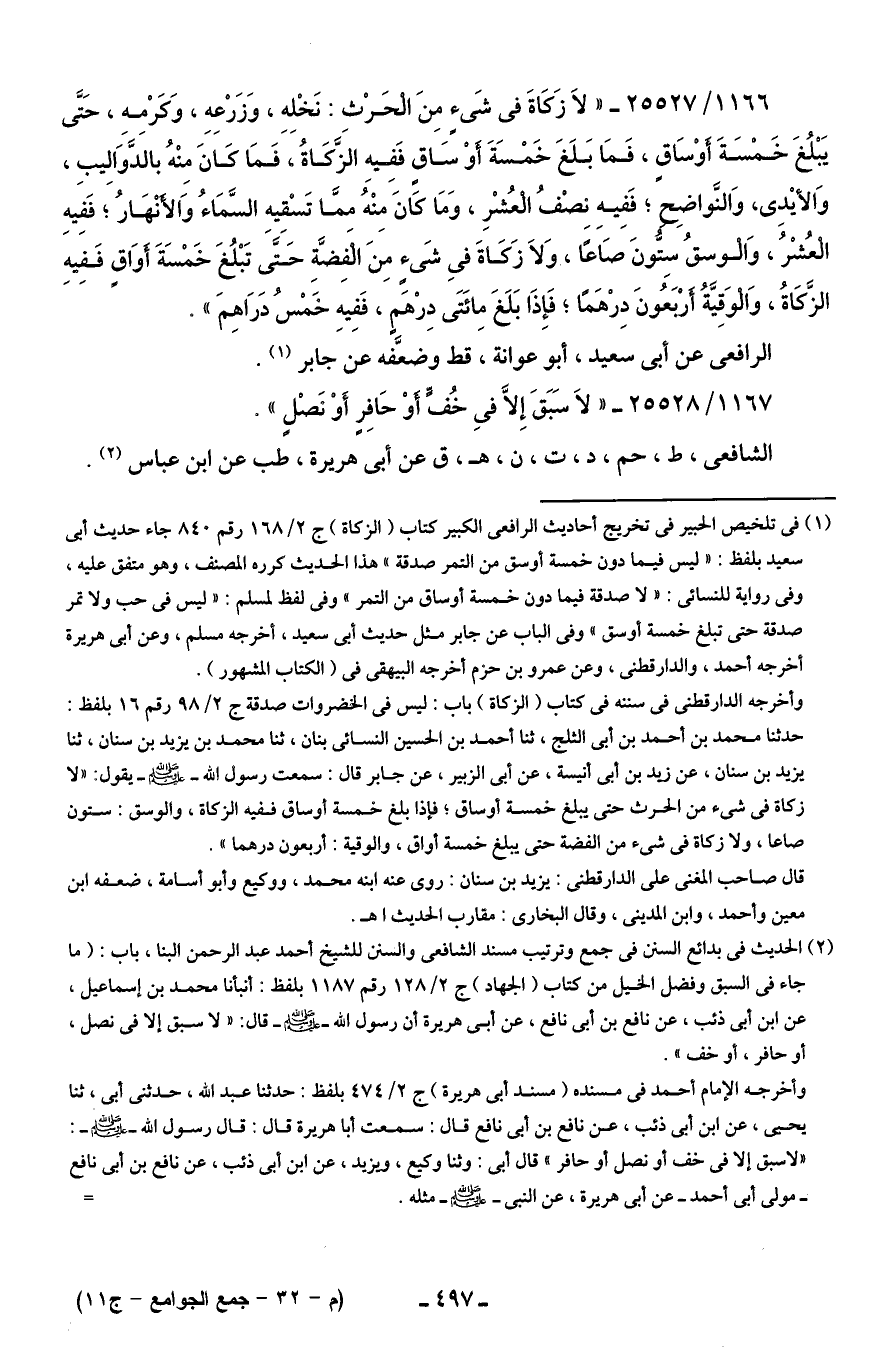 ١١٦٦/ ٢٥٥٢٧ ـ « لاَ زَكَاةَ فِى شَىءٍ مِنَ الْحَرْثِ : نَخْلِهِ ، وَزَرْعِهِ ، وَكَرْمِهِ ، حَتَّى
يَبْلُغَ خَمْسَةَ أَوْسَاقٍ ، فَمَا بَلَغَ خَمْسَةَ أَوْسَاقٍ فَفِيهِ الزَّكَاةُ ، فَمَا كَانَ مِنْهُ بالدَّوَالِيبِ ،
وَالأَيْدِى، وَالنَّوَاضِحِ ؛ فَفِيهِ نِصْفُ الْعُشْرِ ، وَمَا كَانَ مِنْهُ مِمَّا تَسْقِيهِ السَّمَاءُ وَالأَنْهَارُ ؛ فَفِيهِ
الْعُشْرُ ، وَالْوسقُ سِتُّونَ صَاعًا ، وَلاَ زَكَاةَ فِى شَىءٍ مِنَ الفِضَّةِ حَتَّى تَبْلُغَ خَمْسَةَ أَوَاقٍ فَفِيهِ
الزَّكَاةُ ، وَالْوَقِيَّةُ أَرْبَعُونَ دِرْهَمًا ؛ فَإِذَا بَلَغَ مِائَتَى دِرْهَمٍ ، فَفِيهِ خَمْسُ دَرَاهِمَ » .
الرافعى عن أبى سعيد ، أبو عوانة ، قط وضعَّفه عن جابر (١) .
١١٦٧/ ٢٥٥٢٨ ـ « لاَ سَبَقَ إِلاَّ فِى خُفٍّ أَوْ حَافِرٍ أَوْ نَصْلٍ » .
الشافعى ، ط ، حم ، د ، ت ، ن ، هـ ، ق عن أبى هريرة ، طب عن ابن عباس (٢) .
(١) فى تلخيص الحبير فى تخريج أحاديث الرافعى الكبير كتاب ( الزكاة ) ج ٢/ ١٦٨ رقم ٨٤٠ جاء حديث أبى
سعيد بلفظ : « ليس فيما دون خمسة أوسق من التمر صدقة » هذا الحديث كرره المصنف ، وهو متفق عليه ،
وفى رواية للنسائى : « لا صدقة فيما دون خمسة أوساق من التمر » وفى لفظ لمسلم : « ليس فى حب ولا تمر
صدقة حتى تبلغ خمسة أوسق » وفى الباب عن جابر مثل حديث أبى سعيد ، أخرجه مسلم ، وعن أبى هريرة
أخرجه أحمد ، والدارقطنى ، وعن عمرو بن حزم أخرجه البيهقى فى ( الكتاب المشهور ) .
وأخرجه الدارقطنى فى سننه فى كتاب ( الزكاة ) باب : ليس فى الخضروات صدقة ج ٢/ ٩٨ رقم ١٦ بلفظ :
حدثنا محمد بن أحمد بن أبى الثلج ، ثنا أحمد بن الحسين النسائى بنان ، ثنا محمد بن يزيد بن سنان ، ثنا
يزيد بن سنان ، عن زيد بن أبى أنيسة ، عن أبى الزبير ، عن جابر قال : سمعت رسول الله ـ ﷺ ـ يقول: «لا
زكاة فى شىء من الحرث حتى يبلغ خمسة أوساق ؛ فإذا بلغ خمسة أوساق ففيه الزكاة ، والوسق : ستون
صاعا ، ولا زكاة فى شىء من الفضة حتى يبلغ خمسة أواق ، والوقية : أربعون درهما » .
قال صاحب المغنى على الدارقطنى : يزيد بن سنان : روى عنه ابنه محمد ، ووكيع وأبو أسامة ، ضعفه ابن
معين وأحمد ، وابن المدينى ، وقال البخارى : مقارب الحديث ا هـ .
(٢) الحديث فى بدائع السنن فى جمع وترتيب مسند الشافعى والسنن للشيخ أحمد عبد الرحمن البنا ، باب : ( ما
جاء فى السبق وفضل الخيل من كتاب ( الجهاد ) ج ٢/ ١٢٨ رقم ١١٨٧ بلفظ : أنبأنا محمد بن إسماعيل ،
عن ابن أبى ذئب ، عن نافع بن أبى نافع ، عن أبى هريرة أن رسول الله ـ ﷺ ـ قال: « لا سبق إلا فى نصل ،
أو حافر ، أو خف » .
وأخرجه الإمام أحمد فى مسنده ( مسند أبى هريرة ) ج ٢/ ٤٧٤ بلفظ : حدثنا عبد الله ، حدثنى أبى ، ثنا
يحيى ، عن ابن أبى ذئب ، عن نافع بن أبى نافع قال : سمعت أبا هريرة قال : قال رسول الله ـ ﷺ ـ :
«لاسبق إلا فى خف أو نصل أو حافر » قال أبى : وثنا وكيع ، ويزيد ، عن ابن أبى ذئب ، عن نافع بن أبى نافع
ـ مولى أبى أحمد ـ عن أبى هريرة ، عن النبى ـ ﷺ ـ مثله . =
ـ ٤٩٧ ـ (م - ٣٢ - جمع الجوامع - ج١١)